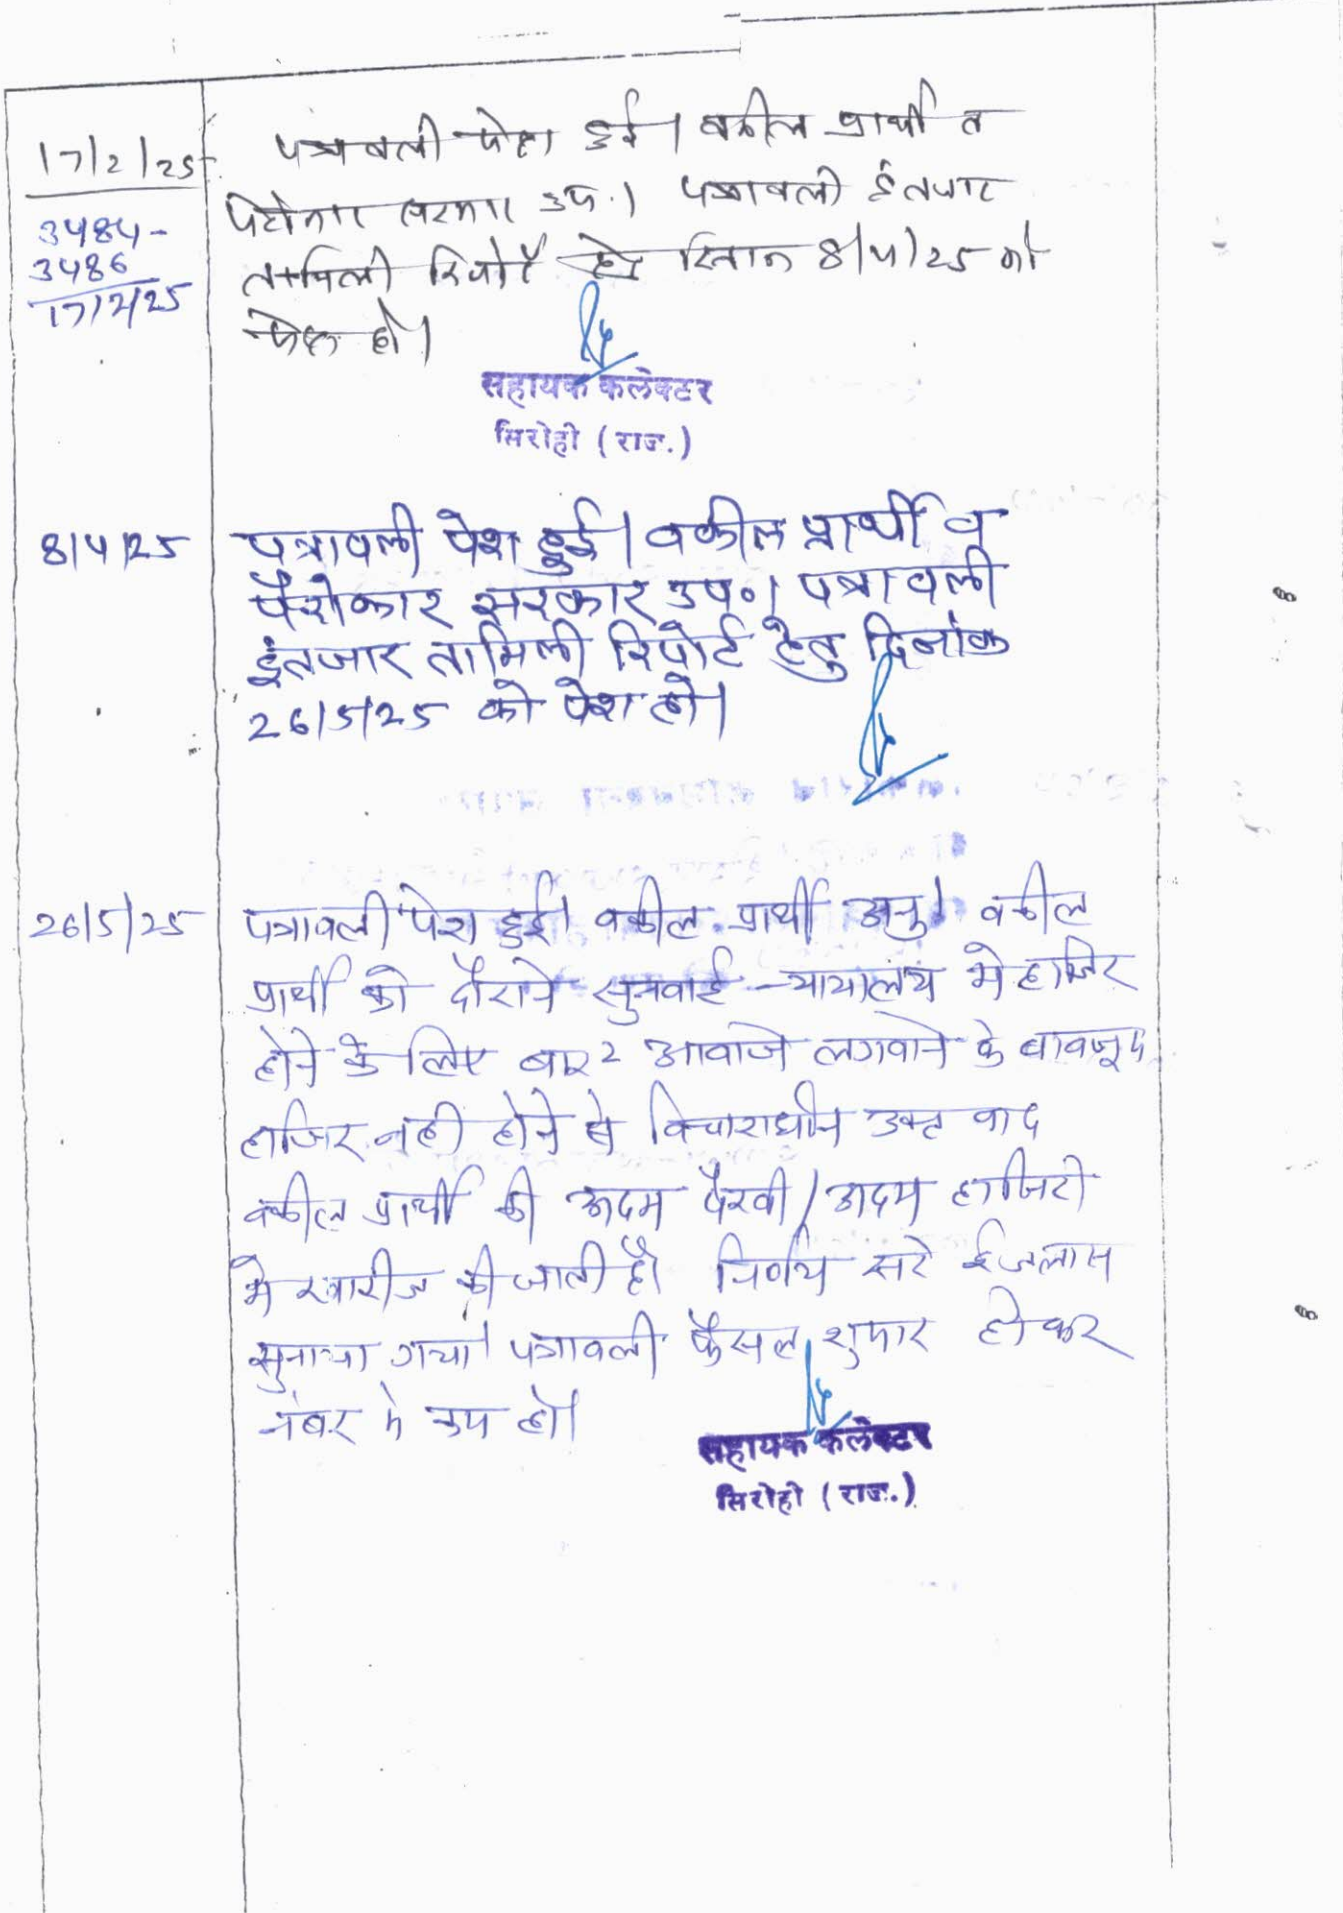 17/2/25 पत्रावली पेश हुई। वकील प्रार्थी व
3484- पैरोकार सरकार उप.। पत्रावली इंतजार
3486 तामिली रिपोर्ट हेतु दिनांक 8/4/25 को
17/2/25 पेश हो।
सहायक कलेक्टर
सिरोही (राज.)
8/4/25 पत्रावली पेश हुई। वकील प्रार्थी व
पैरोकार सरकार उप०। पत्रावली
इंतजार तामिली रिपोर्ट हेतु दिनांक
26/5/25 को पेश हो।
26/5/25 पत्रावली पेश हुई। वकील प्रार्थी अनु। वकील
प्रार्थी को दौराने सुनवाई न्यायालय मे हाजिर
होने के लिए बार2 आवाजे लगवाने के बावजूद
हाजिर नही होने से विचाराधीन उक्त वाद
वकील प्रार्थी की अदम पैरवी/अदम हाजिरी
मे खारीज की जाती है। निर्णय सरे ईजलास
सुनाया गया। पत्रावली फैसल शुमार होकर
नंबर से कम हो।
सहायक कलेक्टर
सिरोही (राज.)